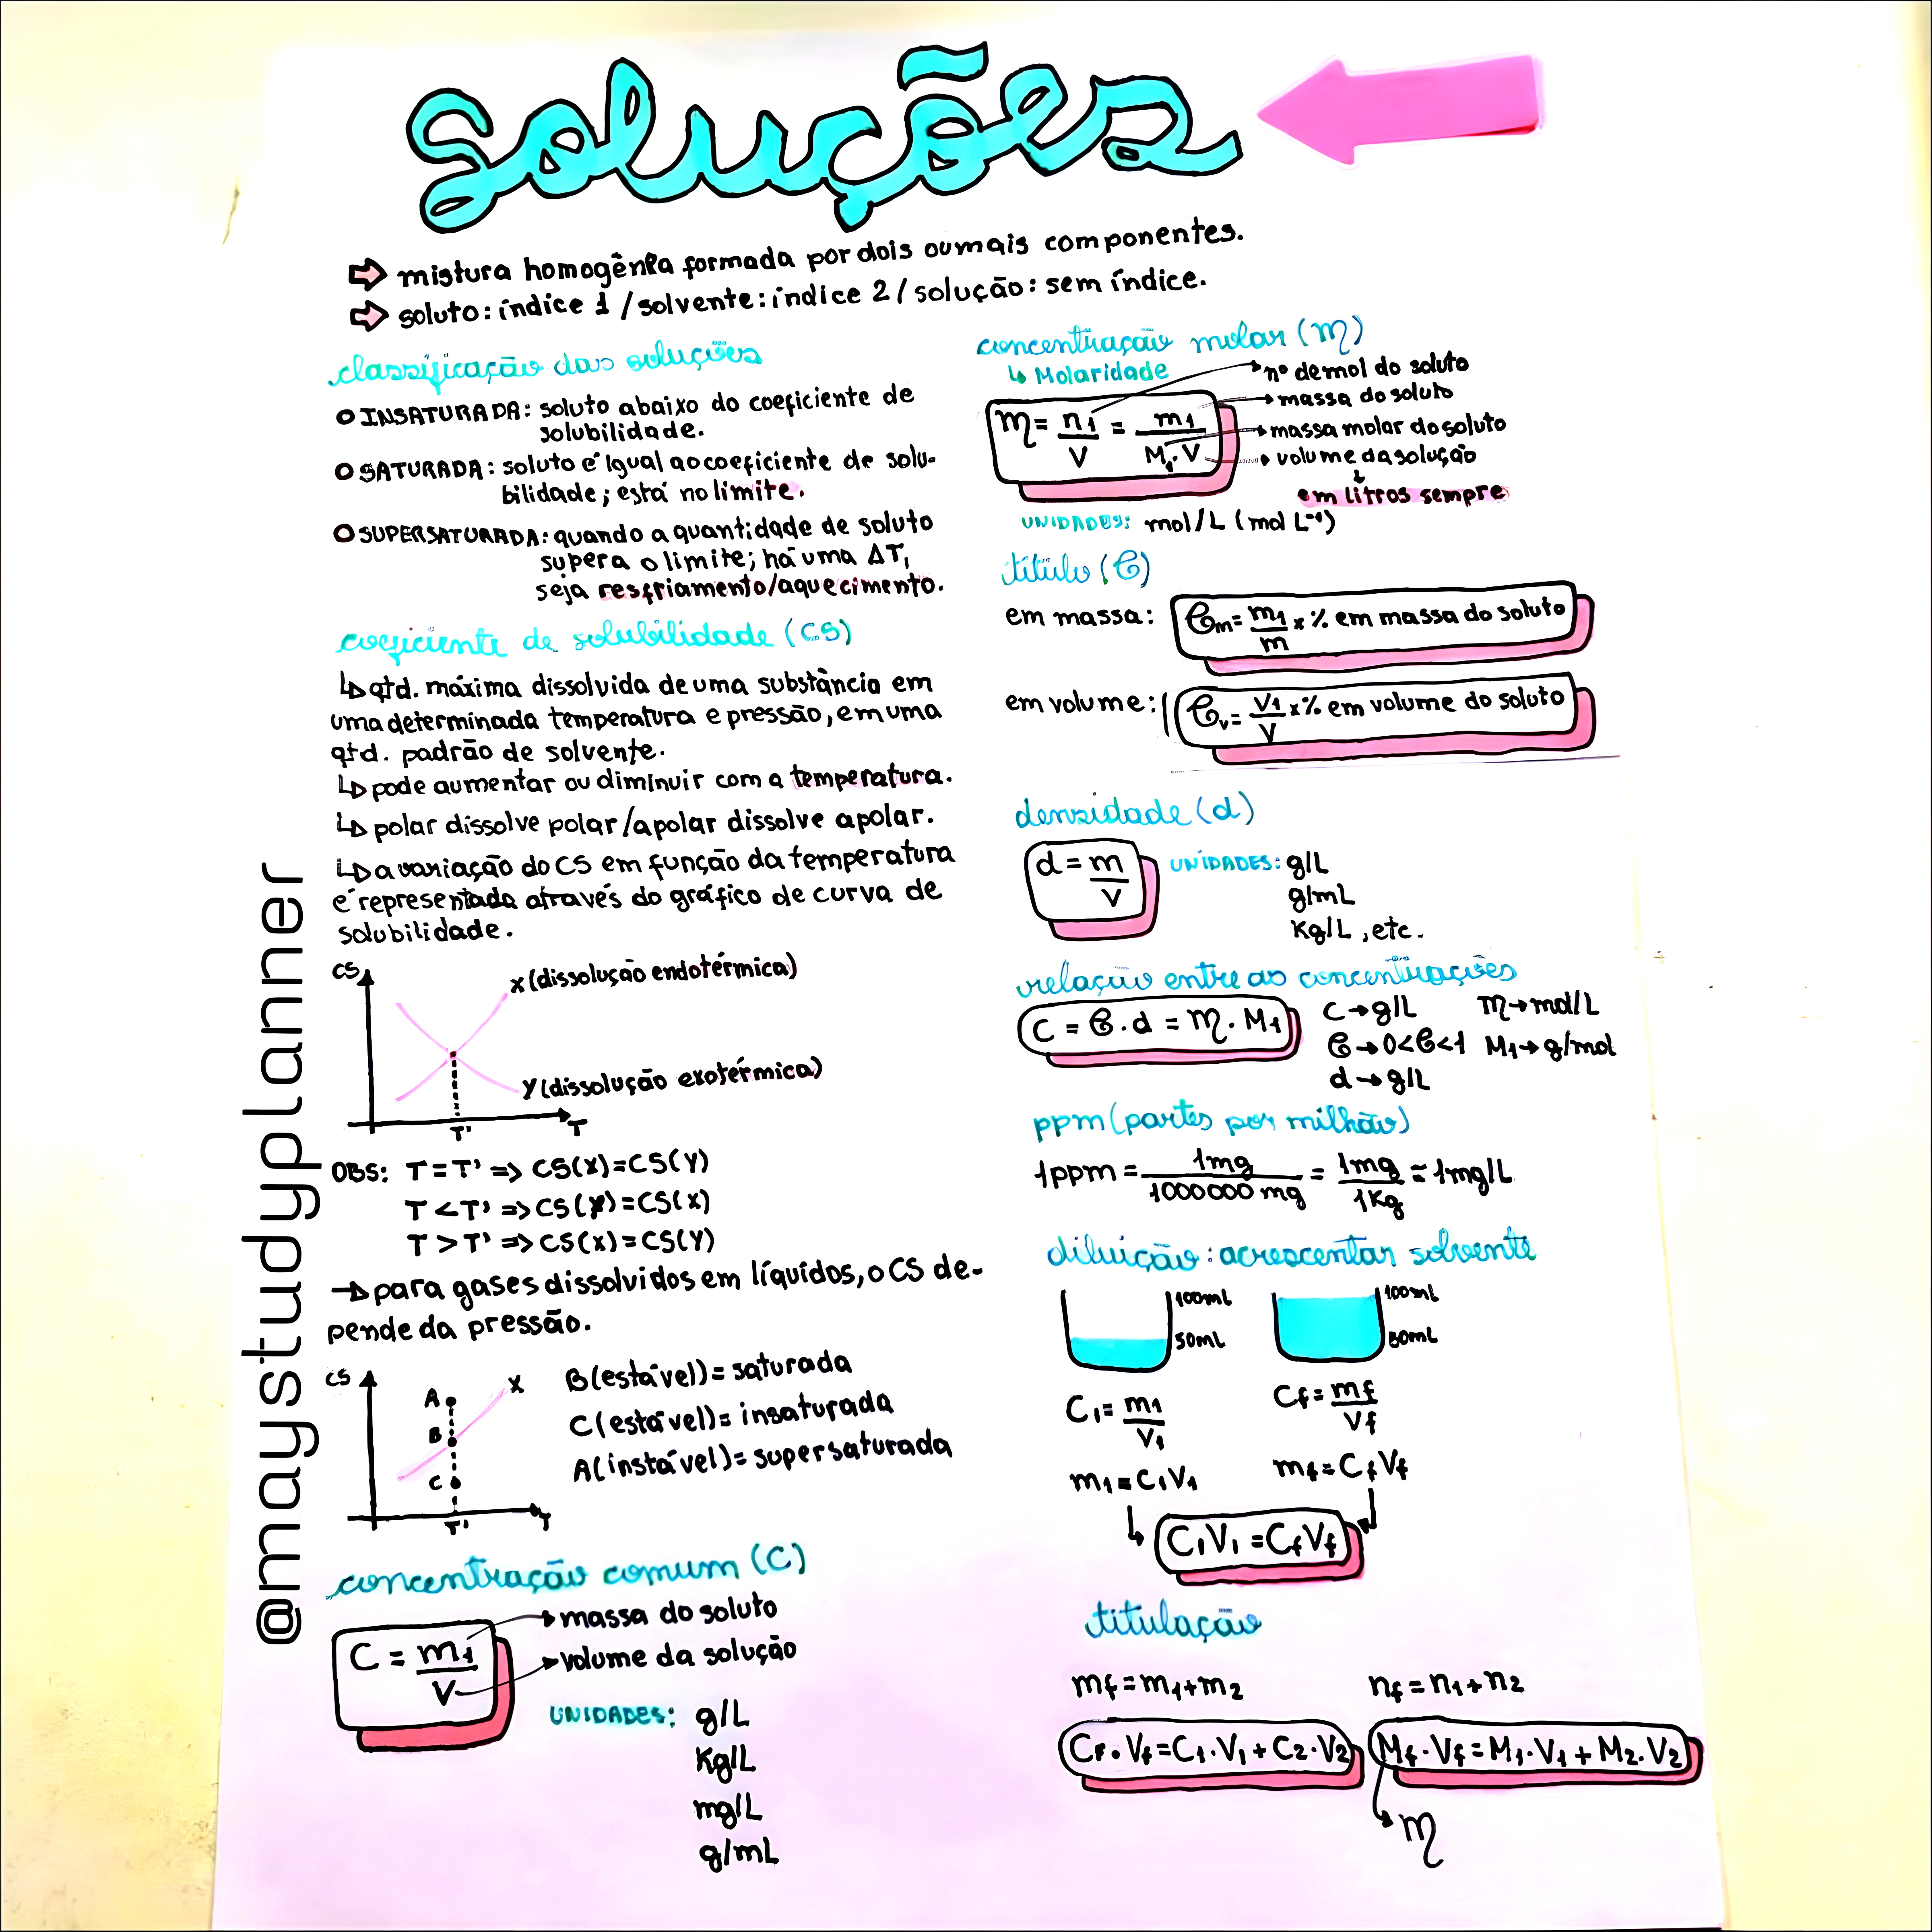 Soluções
mistura homogênea formada por dois ou mais componentes.
soluto: índice 1 / solvente: índice 2 / solução: sem índice.
classificação das soluções
INSATURADA: soluto abaixo do coeficiente de
solubilidade.
SATURADA: soluto é igual ao coeficiente de solu-
bilidade; está no limite.
SUPERSATURADA: quando a quantidade de soluto
supera o limite; há uma ΔT,
seja resfriamento/aquecimento.
coeficiente de solubilidade (CS)
↳ qtd. máxima dissolvida de uma substância em
uma determinada temperatura e pressão, em uma
qtd. padrão de solvente.
↳ pode aumentar ou diminuir com a temperatura.
↳ polar dissolve polar/apolar dissolve apolar.
↳ a variação do CS em função da temperatura
é representada através do gráfico de curva de
solubilidade.
CS
X (dissolução endotérmica)
Y (dissolução exotérmica)
T'
T
OBS: T = T' => CS(X)=CS(Y)
T < T' => CS(Y)=CS(X)
T > T' => CS(X)=CS(Y)
→ para gases dissolvidos em líquidos, o CS de-
pende da pressão.
CS
A
X
B
C
T'
T
B(estável)= saturada
C(estável)= insaturada
A(instável)= supersaturada
concentração comum (C)
C = m1/V
massa do soluto
volume da solução
UNIDADES: g/L
Kg/L
mg/L
g/mL
concentração molar (M)
↳ Molaridade
M = n1/V = m1/M1.V
nº de mol do soluto
massa do soluto
massa molar do soluto
volume da solução
em litros sempre
UNIDADES: mol/L (mol L⁻¹)
título (τ)
em massa: τm = m1/m x % em massa do soluto
em volume: τv = V1/V x % em volume do soluto
densidade (d)
d = m/V
UNIDADES: g/L
g/mL
Kg/L, etc.
relação entre as concentrações
C = τ . d = M . M1
C → g/L M → mol/L
τ → 0<τ<1 M1 → g/mol
d → g/L
ppm (partes por milhão)
1ppm = 1mg/1000000 mg = 1mg/1Kg = 1mg/L
diluição: acrescentar solvente
100mL
50mL
100mL
50mL
C1 = m1/V1
Cf = mf/Vf
m1 = C1V1
mf = CfVf
C1V1 = CfVf
titulação
mf = m1+m2
nf = n1+n2
Cf . Vf = C1 . V1 + C2 . V2
Mf . Vf = M1 . V1 + M2 . V2
M
@maystudyplanner